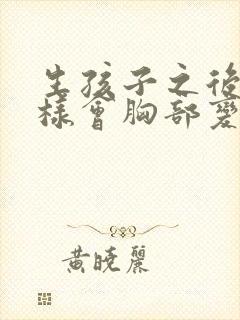 生孩子之後
樣會胸部變
黃曉麗